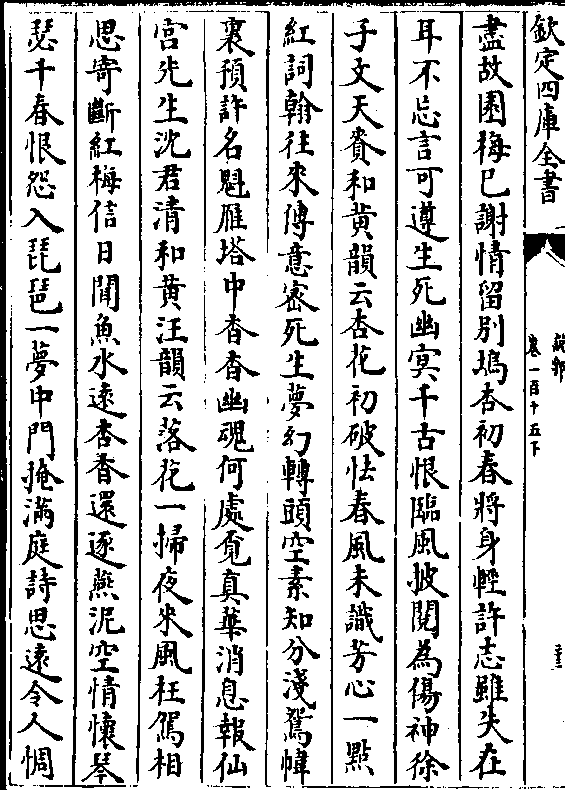 欽定四庫全書
說郛
卷一百十五下
盡故園梅已謝情留別塢杏初春將身輕許志雖失在
耳不忘言可遵生死幽冥千古恨臨風披閱為傷神徐
子文天賚和黄韻云杏花初破怯春風未識芳心一㸃
紅詞翰往來傳意宻死生夢幻轉頭空素知分淺鴛幃
裏預許名魁雁塔中杳杳幽魂何處覓真華消息報仙
宫先生沈君清和黄汪韻云落花一掃夜來風枉駕相
思寄斷紅梅信日聞魚水逺杏香還逐燕泥空情懷琴
瑟千春恨怨入琵琶一夢中門掩滿庭詩思逺令人惆